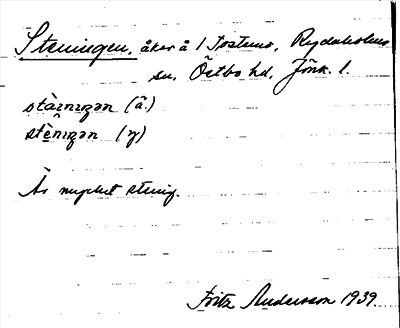 Steningen, åker å 1 Tostena, Rydaholms
sn, Östbo hd, Jönk. l.
stàinıgən (ä.)
stènıgən (y)
Är mycket stenig.
Fritz Andersson 1939.